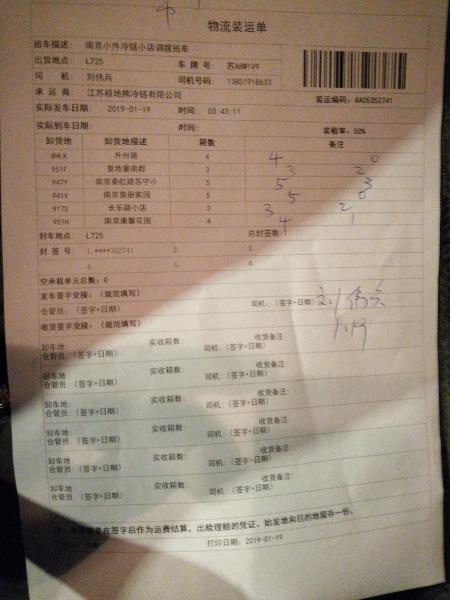 物流装运单
班车描述: 南京小件冷链小店调拨班车
出货地点: L725 车牌号: 苏A8W1V9
司 机: 刘伟兵 司机号码: 13851918633
承 运 商: 江苏极地熊冷链有限公司 装运编码: AA05352741
实际发车日期: 2019-01-19 时间: 03:43:11
实际到车日期: 时间: 装载率: 50%
卸货地 卸货地描述 箱数 备注
8HLX 升州路 4 4 0
951F 复地宴南都 3 3 2
947Y 南京秦虹路苏宁小 5 5 3
941V 南京皇册家园 5 5 0
917U 长乐路小店 3 3 2
951H 南京康馨花园 4 4 1
封车地点: L725 总封签数:
封 签 号: 1.****352741 2. 3.
4. 5. 6.
空承载单元总数: 0
发车签字交接: (规范填写)
仓管员: (签字+日期) 司机: (签字+日期) 刘伟兵
收货签字交接: (规范填写) 1.19
卸车地: 实收箱数: 收货备注:
仓管员: (签字+日期) 司机: (签字+日期)
卸车地: 实收箱数: 收货备注:
仓管员: (签字+日期) 司机: (签字+日期)
卸车地: 实收箱数: 收货备注:
仓管员: (签字+日期) 司机: (签字+日期)
卸车地: 实收箱数: 收货备注:
仓管员: (签字+日期) 司机: (签字+日期)
卸车地: 实收箱数: 收货备注:
仓管员: (签字+日期) 司机: (签字+日期)
卸车地: 实收箱数: 收货备注:
仓管员: (签字+日期) 司机: (签字+日期)
在签字后作为运费结算、出险理赔的凭证。始发地和目的地留存一份。
打印日期: 2019-01-19